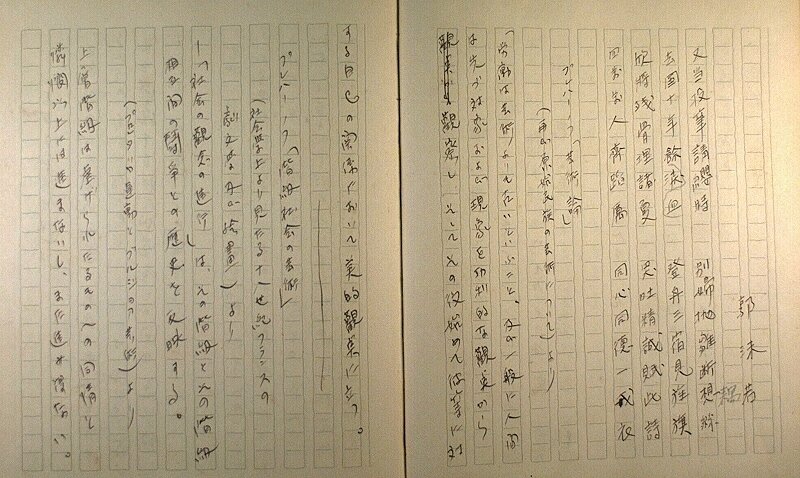 郭沫若
又当投筆請纓時　別婦抛雛断想絲
去国十年餘涙血　登舟三宿見旌旗
欣将残骨埋諸夏　哭吐精誠賦此詩
四万万人齊蹈厲　同心同徳一戎衣
プレハーノフ「芸術論」
(再び原始民族の芸術について)より
「労働は芸術よりも古いといふこと、及び一般に人間
は先づ対象および現象を功利的な観点から
観察し、そしてその後始めて彼等に対
する自己の関係において美的観点に立つ。
プレハーノフ「階級社会の芸術」
(社会学上より見たる十八世紀フランスの
劇文学及び絵画)より
—「社会の観念の進行」は、その階級とその階級
相互間の闘争との歴史を反映する。
(プロレタリア運動とブルジョア芸術)より
上層階級は虐げられたるものへの同情と
憐憫以上には進まないし、また進み得ない。